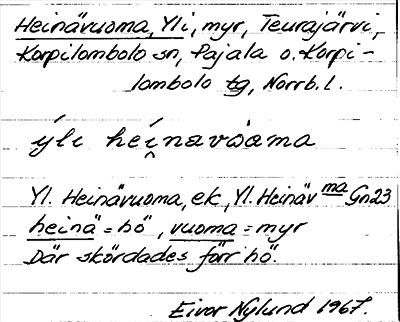 Heinävuoma, Yli, myr, Teurajärvi,
Korpilombolo sn, Pajala o. Korpi-
lombolo tg, Norrb. l.
ýli heínavåama
Yl. Heinävuoma, ek, Yl. Heinäv ma Gn23
heinä = hö, vuoma = myr
Där skördades förr hö.
Eivor Nylund 1967.